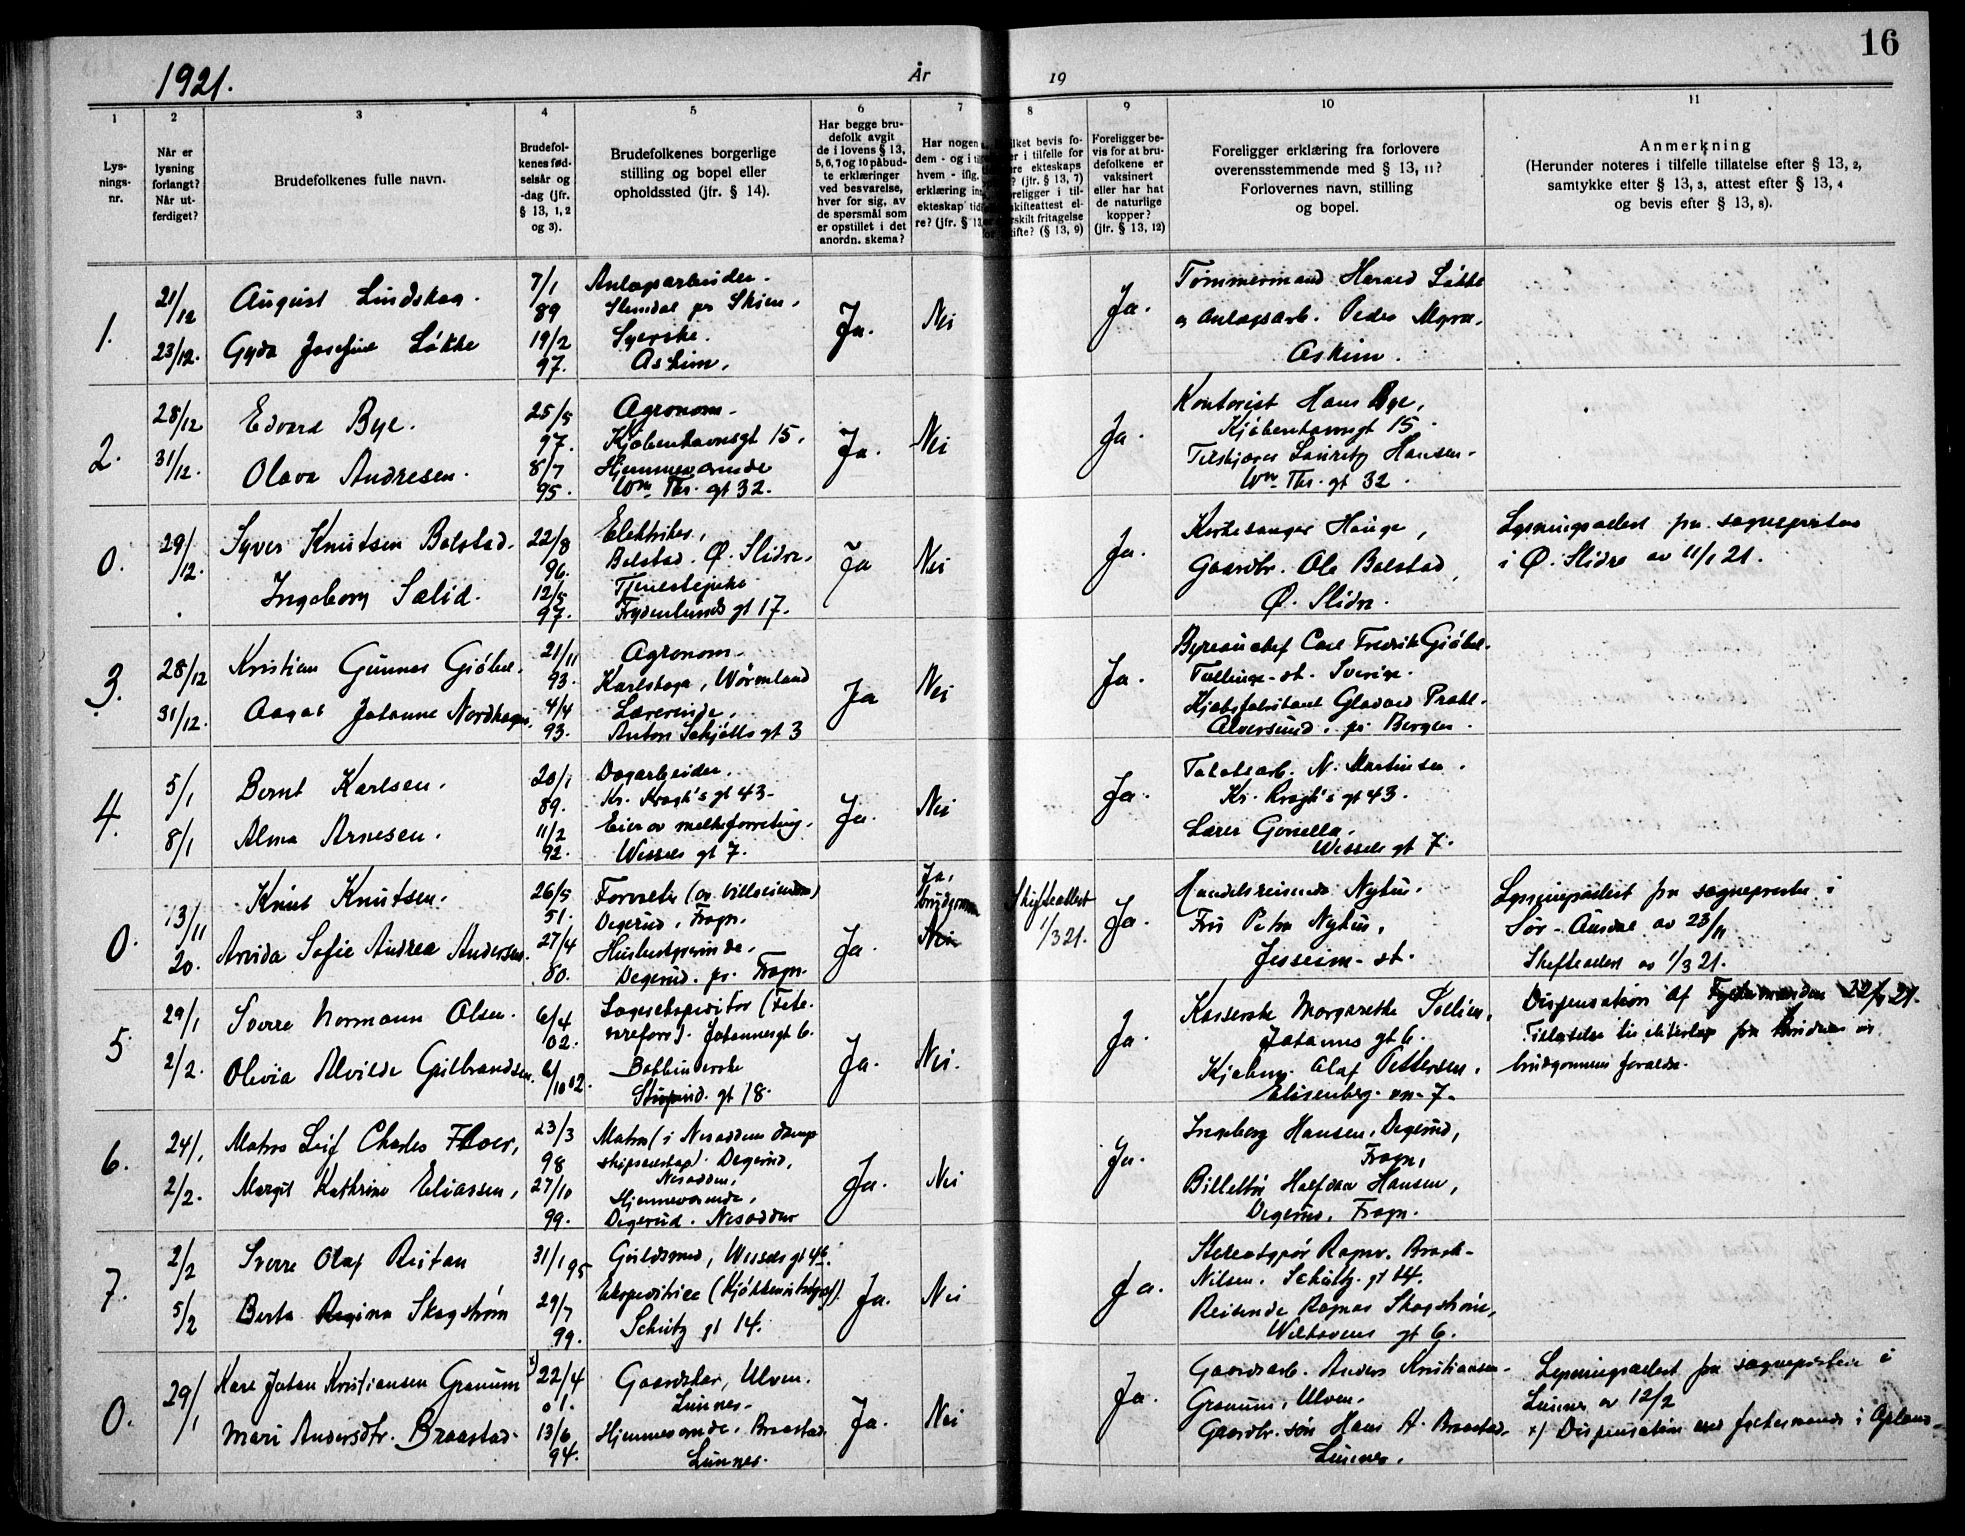 16
1921.
År
19
1
2
3
4
5
6
7
8
9
10
11
Lys-
nings-
nr.
Når er
lysning
forlangt?
Når ut-
ferdiget?
Brudefolkenes fulle navn.
Brudefol-
kenes fød-
selsår og
-dag (jfr.
§ 13, 1, 2
og 3).
Brudefolkenes borgerlige
stilling og bopel eller
opholdssted (jfr. § 14).
Har begge bru-
defolk avgit
de i lovens § 13,
5, 6, 7 og 10 påbud-
te erklæringer
ved besvarelse,
hver for sig, av
de spørsmål som
er opstillet i det
anordn. skema?
Har nogen
dem - og i
hvem - iflg.
erklæring
ekteskap
re? (jfr. § 13
bevis fo-
i tilfelle for
ekteskaps
? (jfr. § 13, 7)
i til-
skifteattest el-
fritagelse
? (§ 13, 9)
Foreligger be-
vis for at bru-
defolkene er
vaksinert
eller har hat
de naturlige
kopper?
(jfr. § 13, 12)
Foreligger erklæring fra forlovere
overensstemmende med § 13, 11?
Forlovernes navn, stilling
og bopel.
Anmerkning
(Herunder noteres i tilfelle tillatelse efter § 13, 2,
samtykke efter § 13, 3, attest efter § 13, 4
og bevis efter § 13, 8).
1.
21/12
23/12.
August Lindskog.
Gyda Josefine Løkke
7/1
89
19/2
97.
Anlægsarbeider.
Slemdal pr Skien.
Syerske.
Askim.
Ja.
Nei
Ja.
Tømmermand Harald Løkke
og Anlægsarb. Peder Myra.
Askim.
2.
28/12
31/12.
Edvard Bye.
Olava Andresen.
25/5
97.
8/7
95.
Agronom.
Kjøbenhavnsgt 15.
Hjemmeværende
Wm Thr. gt 32.
Ja.
Nei
Ja.
Kontorist Hans Bye,
Kjøbenhavnsgt 15.
Lauritz Hansen.
Wm Thr. gt 32.
0.
29/12.
Syver Knutsen Bolstad.
Ingeborg Sælid.
22/8
96.
12/5
97.
Elektriker,
Bolstad. Ø. Slidre.
Tjenestepike
Frydenlunds gt 17.
Ja
Nei
Ja.
Kirkesanger Hauge,
Gaardbr. Ole Bolstad,
Ø. Slidre.
Lysningsattest fra sogneprsten
i Ø. Slidre av 11/1 21.
3.
28/12
31/12.
Kristian Gunnar Gjøbel.
Johanne Nordhagen.
21/11
93.
4/4
93.
Agronom.
Karlskoga, Wärmland
Lærerinde,
Anton Schjøtts gt 3
Ja
Nei
Ja.
Byreauchef Carl Fredrik Gjøbel.
Tullinge-st. Sverige.
Alversund. pr Bergen.
4.
5/1
8/1
Bernt Karlsen.
Alma Arnesen.
20/1
89.
11/2
92.
Dagarbeider.
Kr. Kroghs gt 43.
Eier av melkeforretning.
Wessels gt 7.
Ja.
Nei
Ja.
N. Martinsen.
Kr. Krogh's gt 43.
Lærer
Wessels gt 7.
0.
13/11
20.
Knut Knutsen.
Arvida Sofie Andrea Andersen.
26/5
51.
27/4
80.
Degerud, Frogn.
Husbestyrerinde.
Degerud. pr. Frogn.
Ja.
Ja,
brudgommen
Nei
Skifteattest
1/3 21.
Ja.
Handelsreisende Nyhus.
Fru Petra Nyhus.
Jesseim-st.
Lysningsattest fra sogneprsten i
Sør-Aurdal av 23/11
Skifteattest av 1/3 21.
5
29/1
2/2.
Sverre Normann Olsen.
Olevia Alvilde Gulbrandsen.
6/4
02.
6/10 02.
Lagerekspeditør
Johannesgt 6.
Bobbinerske
gt 18.
Ja.
Nei.
Ja.
Kasserske Margarethe
Johannes gt 6.
Kjøbm. Olaf Pettersen.
Elisenberg. vn. 7.
Dispensation af Fylkesmanden 22/1 21.
brudgommens forældre.
6.
24/1
2/2.
Matros Leif Charles Floer,
Margit Kathrine Eliassen,
23/3
98
27/10
99.
Matros (i Nesoddens damp
skipsselskap). Degerud,
Nesodden,
Hjemmeværende,
Degerud. Nesodden
Ja.
Nei
Ja.
Ingeborg Hansen. Degerud,
Frogn,
Billettør Halfdan Hansen,
Degerud. Frogn.
7.
2/2
5/2
Sverre Olaf Reitan
Berta Regina Skogstrøm
31/1 95
29/7
99.
Guldsmed, Wessels gt 4b.
Ekspeditrice
Schultz gt 14.
Ja.
Nei
Ja.
Stereotypør Ragnv. Brock-
Nilsen. Schultz. gt 14.
Reisende Ragnar Skogstrøm,
Welhavens gt 6.
0.
29/1
Karl Johan Kristiansen Granum
Mari Andersdtr. Braastad.
x) 22/4
01.
13/6
94.
Gaardskar, Ulven.
Lunner.
Hjemmeværende. Braastad
Lunner.
Ja.
Nei
Ja.
Gaardsarb. Anders Kristiansen-
Granum, Ulven.
Gaardbr. søn Hans A. Braastad.
Lunner.
Lysningsattest fra sogneprsten i
Lunner av 12/2
x) Dispensation av fylkesmanden i Opland